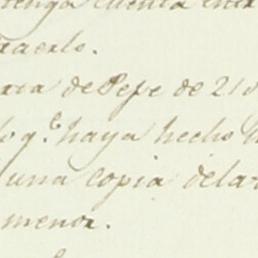 tenga cuenta
traerlo.
rta de Pepe de 21
lo q.e haya hecho
una copia dela
menor.